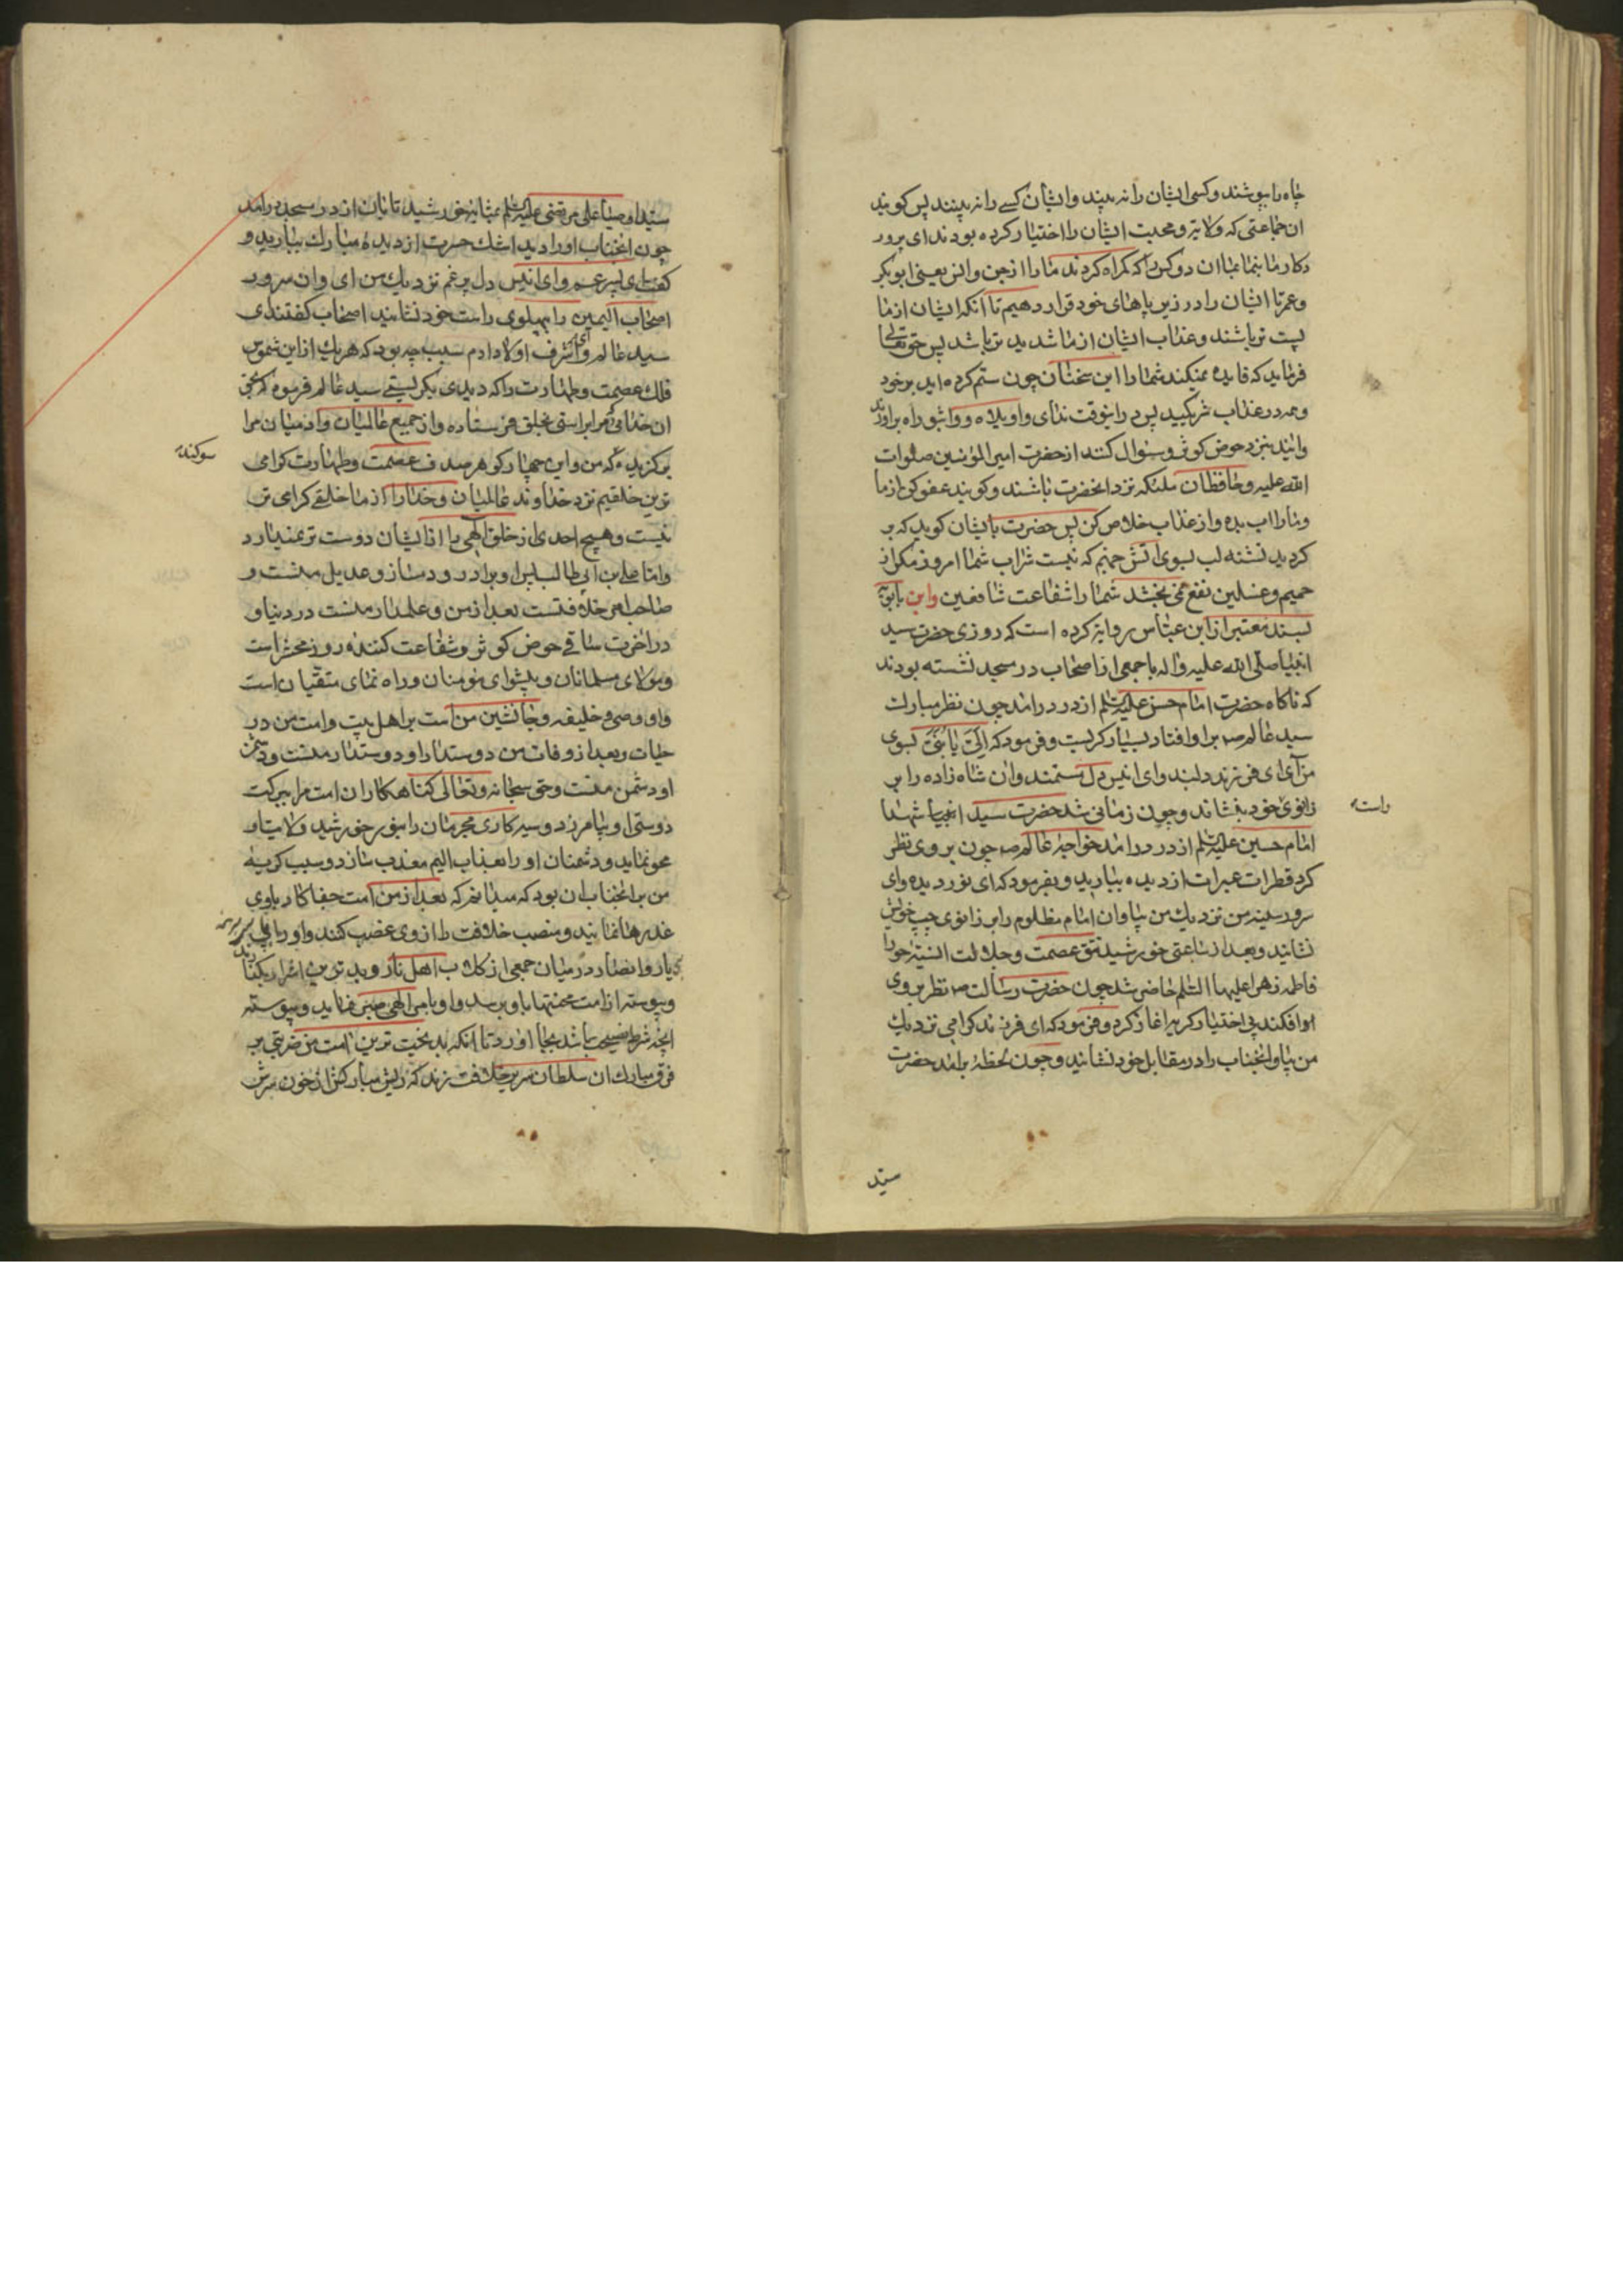 چاه را بپوشند و کسی ایشان را نه بیند و ایشان کسے را نه بینند پس کویند
ان جماعتی که ولایة و محبت ایشان را اختیار کرده بودند ای پرور
دکار ما بنما بما ان دو کس را که کمراه کردند ما را از جن و انس یعنی ابو بکر
و عمر تا ایشان را در زیر پاهای خود قرار دهیم تا آنکه ایشان از ما
پست تر باشند و عذاب ایشان از ما شدید تر باشد پس حق تعالی
فرماید که فایده نمیکند شما را این سخنان چون ستم کرده اید بر خود
و همه در عذاب شریکید پس درانوقت ندای واویلاه و واثبوراه براورند
و ایند بنزد حوض کوثر و سئوال کنند از حضرت امیر المؤمنین صلوات
الله علیه و محافظان ملئکه نزد انحضرت باشند و کویند عفو کن از ما
و ما را اب بده و از عذاب خلاص کن پس حضرت بایشان کوید که بر
کردید تشنه لب بسوی اتش جهنم که نیست شراب شما امروز مکر از
حمیم و غسلین نفع نمی بخشد شما را شفاعت شافعین و ابن بابویه
بسند معتبر از ابن عباس روایة کرده است که روزی حضرت سید
انبیا صلی الله علیه و اله با جمعی از اصحاب در مسجد نشسته بودند
که ناکاه حضرت امام حسن علیه السلم از در درامد چون نظر مبارک
سید عالم ص بر او افتاد بسیار کریست و فرمود که اِلَیَّ یا بُنَیَّ بسوی
من آی ای فرزند دلبند و ای انیس دل مستمند و ان شاه زاده را بر
زانوی خود بنشاند و چون زمانی شد حضرت سید شهدا
راسته
امام حسین علیه السلم از در درامد خواجهٔ عالم ص چون بروی نظر
کرد قطرات عبرات از دیده ببارید و بفرمود که ای نور دیده و ای
سرور سینه من نزدیك من بیا و ان امام مظلوم را بر زانوی چپ خویش
نشانید و بعد از ساعتی خورشید تتق عصمت و جلالت انسیّه حورا
فاطمه زهرا علیها السّلم حاضر شد چون حضرت رسالت ص نظر بروی
او افکند بی اختیار کریه اغاز کرد و فرمود که ای فرزند کرامی نزدیك
من بیا و انجناب را در مقابل خود نشانید و چون لحظهٔ برامد حضرت
سیّد
سیّد اوصیا علی مرتضی علیه السلم بمثابهٔ خورشید تابان از در مسجد درامد
چون انجناب او را دید اشك حسرت از دیدهٔ مبارك ببارید و
کفت ای پسر عم و ای انیس دل پر غم نزدیك من ای و ان سرور
اصحاب الیمین را بپهلوی راست خود نشانید اصحاب کفتند ای
سید عالم و ای اشرف اولاد ادم سبب چه بود که هر یك از این شموس
فلك عصمت و طهارت را که دیدی بکریستی سید عالم فرمود که بحق
ان خدائی که مرا براستی بخلق فرستاده و از جمیع عالمیان و ادمیان مرا
برکزیده که من و این چهار کوهر صدف عصمت و طهارت کرامی
سوکند
ترین خلقیم نزد خداوند عالمیان و خدا را از ما خلقی کرامی تر
نیست و هیچ احدی از خلق الهی را از ایشان دوست تر نمیدارد
و اما علی بن ابی طالب پس او برادر و دمساز و عدیل منست و
صاحب امر خلافتست بعد از من و علمدار منست در دنیا و
در اخرت ساقی حوض کوثر و شفاعت کنندهٔ روز محشر است
و مولای مسلمانان و پیشوای مومنان و راه نمای متقیان است
و او وصی و خلیفه و جانشین من است بر اهل بیت و امت من در
حیات و بعد از وفات من دوستدار او دوستدار منست و دشمن
او دشمن منست و حق سبحانه و تعالی کناهکاران امت مرا ببرکت
دوستی او بیامرزد و سیه کاری مجرمان را بنور خورشید ولایت او
محو نماید و دشمنان او را بعذاب الیم معذب سازد و سبب کریهٔ
من بر انجناب ان بود که میدانم که بعد از من امت جفاکار با وی
غدرها نمایند و منصب خلافت را از وی غصب کنند و او را
بی یار و انصار در میان جمعی از کلاب اهل نار و بدترین اشرار بکذا
رند
و پیوسته از امت محنتها باو برسد و او بامر الهی صبر نماید و پیوسته
انچه شرط نصیحت باشد بجا اورد تا انکه بدبخت ترین امت من ضربتی بر
فرق مبارك ان سلطان سریر خلافت زند که ریش مبارکش از خون سرش